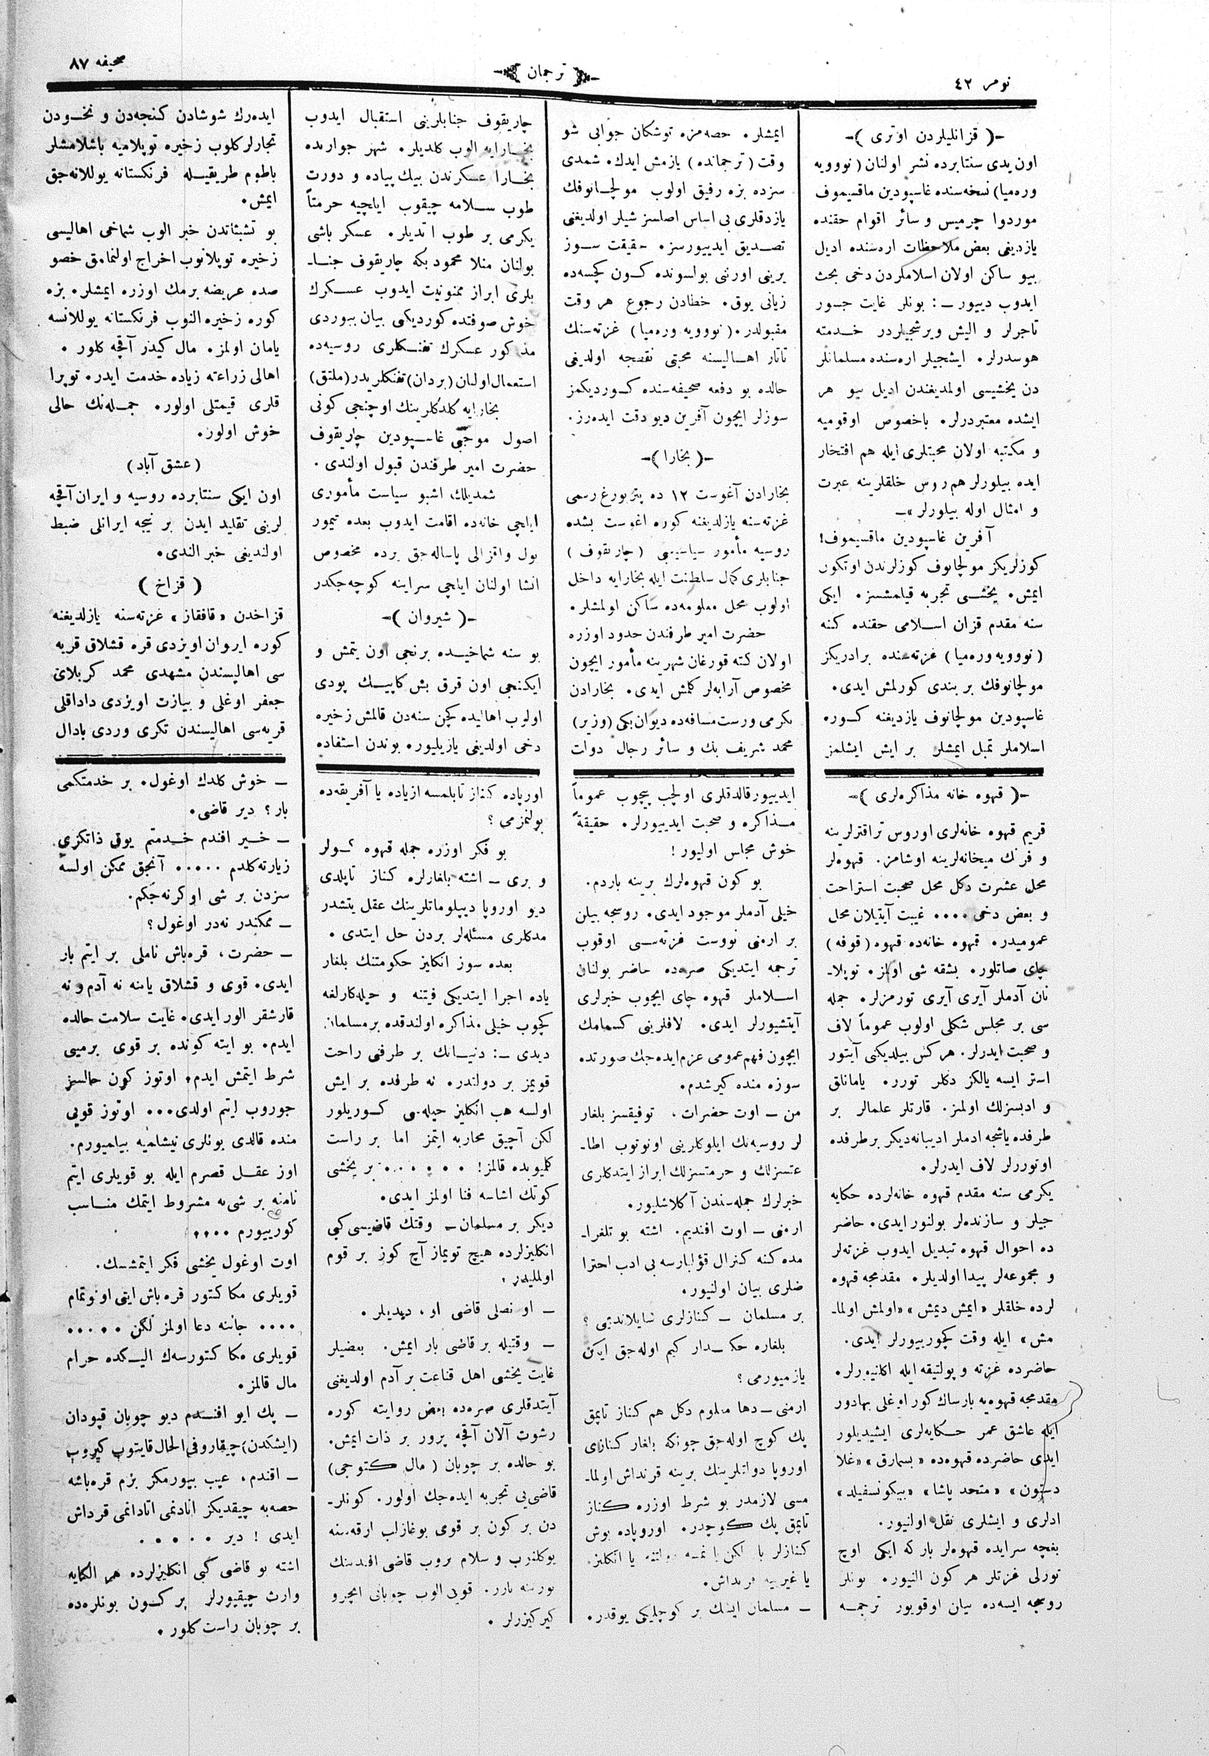 نومر ٤٢
ترجمان
صحیفه ٨٧
-( قزانلیلردن اوتری )-
اون یدی سنتابرده نشر اولنان (نووویه
وره‌میا) نسخه‌سنده غاسپودین ماقسیموف
موردوا چرمیس و سائر اقوام حقنده
یازدیغی بعض ملاحظات اره‌سنده ادیل
بیو ساکن اولان اسلاملردن دخی بحث
ایدوب دییور ــ: بونلر غایت جسور
تاجرلر و الیش ویرشجیلردر خدمته
هوسدرلر. ایشجیلر اره‌سنده مسلمانلر
دن یخشیسی اولمدیغندن ادیل بیو هر
ایشده معتبردرلر. باخصوص اوقومیه
و مکتبه اولان محبتلری ایله هم افتخار
ایده بیلورلر هم روس خلقلرینه عبرت
و امثال اوله بیلورلر »ــ
آفرین غاسپودین ماقسیموف!
کوزلریکز مولچانوف کوزلرندن اوتکور
ایمش. یخشی تجربه قیلمشسز. ایکی
سنه مقدم قزان اسلامی حقنده کنه
(نووویه وره‌میا) غزته‌سنده برادریکز
مولچانوفك بر بندی کورلمش ایدی.
غاسپودین مولچانوف یازدیغنه کوره
اسلاملر تنبل ایمشلر بر ایش ایشلمز
ایمشلر. حصه‌مزه توشکان جوابی شو
وقت (ترجمانده) یازمش ایدك. شمدی
سزده بزه رفیق اولوب مولچانوفك
یازدقلری بی اساس اصلسز شیلر اولدیغنی
تصدیق ایدییورسز. حقیقت سوز
یرینی اورنی بولسونده کون کچسه‌ده
زیانی یوق. خطادن رجوع هر وقت
مقبولدر. (نووویه وره‌میا) غزته‌سنك
تاتار اهالیسنه محبتی نقصجه اولدیغی
حالده بو دفعه صحیفه‌سنده کوردیکمز
سوزلر ایچون آفرین دیو دقت ایده‌رز.
-( بخارا )-
بخارادن آغوست ١٢ ده پتربورغ رسمی
غزته‌سنه یازلدیغنه کوره اغوست بشده
روسیه مأمور سیاسیسی (چاریقوف)
جنابلری کمال سلطنت ایله بخارایه داخل
اولوب محل معلومه‌ده ساکن اولمشلر.
حضرت امیر طرفندن حدود اوزره
اولان کته قورغان شهرینه مأمور ایچون
مخصوص آرابه‌لر کلمش ایدی. بخارادن
یکرمی ورست مسافه‌ده دیوان‌بکی (وزیر)
محمد شریف بك و سائر رجال دولت
چاریقوف جنابلرینی استقبال ایدوب
بخارایه الوب کلدیلر. شهر جوارنده
بخارا عسکرندن بیك پیاده و دورت
طوب سلامه چیقوب ایلچیه حرمتاً
یکرمی بر طوب اتدیلر. عسکر باشی
بولنان منلا محمود بکه چاریقوف جنا-
بلری ابراز ممنونیت ایدوب عسکرك
خوش صوفتده کوردیکی بیان بیوردی
مذکور عسکرك تفنکلری روسیه‌ده
استعمال اولنان (بردان) تفنکلریدر (ملتق)
بخارایه کلدکلرینك اوچنجی کونی
اصول موجبی غاسپودین چاریقوف
حضرت امیر طرفندن قبول اولندی.
شمدیلك اشبو سیاست مأموری
ایلچی خانه‌ده اقامت ایدوب بعده تیمور
یول واقزالی یاساله‌جق برده مخصوص
انشا اولنان ایلچی سراینه کوچه‌جکدر
-( شیروان )-
بو سنه شماخیده برنجی اون یتمش و
ایکنجی اون قرق بش کاپیك پودی
اولوب اهالیده کچن سنه‌دن قالمش زخیره
دخی اولدیغی یازیلیور. بوندن استفاده
ایده‌رك شوشادن کنجه‌دن و نخودن
تجارلر کلوب زخیره توپلامیه باشلامشلر
باطوم طریقیله فرنکستانه یوللانه‌جق
ایمش.
بو تشبثاتدن خبر الوب شماخی اهالیسی
زخیره توپلانوب اخراج اولنمامق خصو
صده عریضه برمك اوزره ایمشلر. بزه
کوره زخیره النوب فرنکستانه یوللانسه
یامان اولمز. مال کیدر آقچه کلور.
اهالی زراعته زیاده خدمت ایدر. توپرا
قلری قیمتلی اولور. جمله‌نك حالی
خوش اولور.
(عشق آباد)
اون ایکی سنتابرده روسیه و ایران آقچه
لرینی تقلید ایدن بر نیجه ایرانلی ضبط
اولندیغی خبر الندی.
( قزاخ )
قزاخدن «قافقاز» غزته‌سنه یازلدیغنه
کوره ایروان اویزدی قره قشلاق قریه
سی اهالیسندن مشهدی محمد کربلای
جعفر اوغلی و بیازت اویزدی داداقلی
قریه‌سی اهالیسندن تکری وردی بادال
-( قهوه خانه مذاکره‌لری )-
قریم قهوه خانه‌لری اوروس تراقترلرینه
و فرنك میخانه‌لرینه اوشامز. قهوه‌لر
محل عشرت دکل محل صحبت استراحت
و بعض دخی .... غیبت آیتیلان محل
عمومیدر. قهوه خانه‌ده قهوه (قوفه)
چای صاتلور. بشقه شی اولمز. توپلا-
نان آدملر آیری آیری تورمزلر. جمله
سی بر مجلس شکلی اولوب عموماً لاف
و صحبت ایدرلر. هرکس بیلدیکنی آیتور
استر ایسه یالکز دکلر تورر. یامانلق
و ادبسزلك اولمز. قارتلر علمالر بر
طرفده یاشجه ادملر ادیبانه دیکر بر طرفده
اوتوررلر لاف ایدرلر.
یکرمی سنه مقدم قهوه خانه‌لرده حکایه
جیلر و سازنده‌لر بولنور ایدی. حاضر
ده احوال قهوه تبدیل ایدوب غزته‌لر
و مجموعه‌لر پیدا اولدیلر. مقدمجه قهوه
لرده خلقلر «ایمش دیمش» «اولمش اولما-
مش» ایله وقت کچوریبورلر ایدی.
حاضرده غزته و پولتیقه ایله اکلنیورلر.
مقدمجه قهوه‌یه بارساك کور اوغلی بهادور
ایله عاشق عمر حکایه‌لری ایشیدیلور
ایدی حاضرده قهوه‌ده «بسمارق» «غلا
دستون» «متحد پاشا» «بیکونسفیلد»
ادلری و ایشلری نقل اولنیور.
بغچه سرایده قهوه‌لر بار که ایکی اوچ
تورلی غزتلر هر کون النیور. بونلر
روسجه ایسه‌ده بیان اوقویور ترجمه
ایدییور قالدقلری اولچب پیچوب عموماً
مذاکره و صحبت ایدییورلر. حقیقةً
خوش مجلس اولیور!
بو کون قهوه‌لرك برینه باردم.
خیلی آدملر موجود ایدی. روسجه بیلن
بر ارمنی نووست غزته‌سی اوقوب
ترجمه ایتدیکی صره‌ده حاضر بولنان
اسلاملر قهوه چای ایچوب خبرلری
آیتشیورلر ایدی. لافلرینی کسمامك
ایچون فهم عمومی عزم ایده‌جك صورتده
سوزه منده کیرشدم.
من ــ اوت حضرات، توفیقسز بلغار
لر روسیه‌نك ایلوکلرینی اونوتوب اطا-
عتسزلك و حرمتسزلك ابراز ایتدکلری
خبرلرك جمله‌سندن آکلاشلیور.
ارمنی ــ اوت افندیم. اشته بو تلغرا-
مده کنه کنرال قوالبارسه بی ادب احترا
ضلری بیان اولنیور.
بر مسلمان ــ کنازلری شایلاندیمی؟
بلغاره حکمدار کیم اوله‌جق ایکن
یازمیورمی؟
ارمنی ــ دها معلوم دکل هم کناز تاپمق
پك کوچ اوله‌جق چونکه بلغار کنازای
اوروپا دولتلرینك برینه قرنداش اولما-
مسی لازمدر بو شرط اوزره کناز
تاپمق پك کوچدر. اوروپاده بوش
کنازلر بار لکن یا نمسه دولته یا انکلیز.
یا غیریه قرنداش.
ــ مسلمان اینك بر کوچلیکی یوقدر.
اورپاده کناز تاپلمسه ازیاده یا آفریقه‌ده
بولنمزمی؟
بو فکر اوزره جمله قهوه کولر
و بری ــ اشته بلغارلره کناز تاپلدی
دیو اوروپا دیپلوماتلرینك عقل یتشدر
مدکلری مسئله‌لر بردن حل ایتدی.
بعده سوز انکلیز حکومتنك بلغار
یاده اجرا ایتدیکی فیتنه و حیله‌کارلغه
کچوب خیلی مذاکره اولندقده بر مسلمان
دیدی ــ: دنیانك بر طرفنی راحت
قویمز بر دولتدر. نه طرفده بر ایش
اولسه هب انکلیز حیله‌سی کوریلور
لکن آچیق محاربه ایتمز اما بر راست
کلیویده قالمز! ...... بر یخشی
کوتك اشاسه فنا اولمز ایدی.
دیکر بر مسلمان ــ وقتك قاضیسی کبی
انکلیزلرده هیچ تویماز آچ کوز بر قوم
اولملیدر.
ــ او نصلی قاضی او، دیدیلر.
ــ وقتیله بر قاضی بار ایمش. بعضیلر
غایت یخشی اهل قناعت بر آدم اولدیغنی
آیتدقلری صره‌ده بعض روایته کوره
رشوت آلان آقچه پرور بر ذات ایمش.
بو حالده بر چوبان (مال کتوجی)
قاضی‌یی تجربه ایده‌جك اولور. کونلر-
دن بر کون بر قوی بوغازلب ارقه‌سنه
یوکلنرب و سلام بروب قاضی افندینك
اوینه بارر. قویی الوب چوبانی ایچرو
کیرکیزرلر.
ــ خوش کلدك اوغول. بر خدمتکمی
بار؟ دیر قاضی.
ــ خیر افندم خدمتم یوق ذاتکزی
زیارته کلدم ..... آنجق ممکن اولسه
سزدن بر شی اوکرنه‌جکم.
ــ ممکندر نه‌در اوغول؟
ــ حضرت، قره‌باش ناملی بر ایتم بار
ایدی. قوی و قشلاق یاننه نه آدم و نه
قارشقر الور ایدی. غایت سلامت حالده
ایدم. بو ایته کونده بر قوی برمیی
شرط ایتمش ایدم. اوتوز کون حالسز
جوروب ایتم اولدی... اوتوز قویی
منده قالدی بونلری نیشلمیه بیلمیورم.
اوز عقل قصرم ایله بو قویلری ایتم
نامنه بر شی‌یه مشروط ایتمك مناسب
کورییورم ....
اوت اوغول یخشی فکر ایتمشسك.
قویلری مکا کتور قره باش ایتی اونوتمام
.... جاننه دعا اولمز لکن .....
قویلری مکا کتورسه‌ك الیکده حرام
مال قالمز.
ــ پك ایو افندم دیو چوبان قپودان
(ایشکدن) چیقارو فی الحال قایتوب کیروب
ــ افندم، عیب بیورمکز بزم قره‌باشه
حصه‌یه چیقدیکز انادنمی اتادانمی قرداش
ایدی! دیر .....
اشته بو قاضی کبی انکلیزلرده هر الکایه
وارث چیقیورلر بر کون بونلره‌ده
بر چوبان راست کلور.